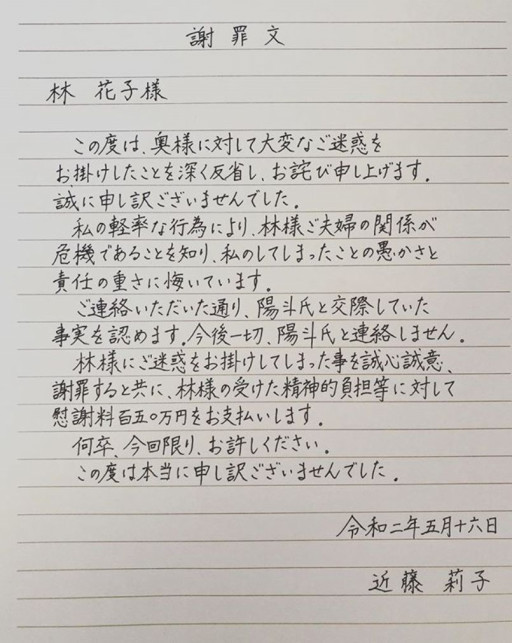 謝罪文
林 花子様
この度は、奥様に対して大変なご迷惑を
お掛けしたことを深く反省し、お詫び申し上げます。
誠に申し訳ございませんでした。
私の軽率な行為により、林様ご夫婦の関係が
危機であることを知り、私のしてしまったことの愚かさと
責任の重さに悔いています。
ご連絡いただいた通り、陽斗氏と交際していた
事実を認めます。今後一切、陽斗氏と連絡しません。
林様にご迷惑をお掛けしてしまった事を誠心誠意、
謝罪すると共に、林様の受けた精神的負担等に対して
慰謝料百五〇万円をお支払いします。
何卒、今回限り、お許しください。
この度は本当に申し訳ございませんでした。
令和二年五月十六日
近藤 莉子